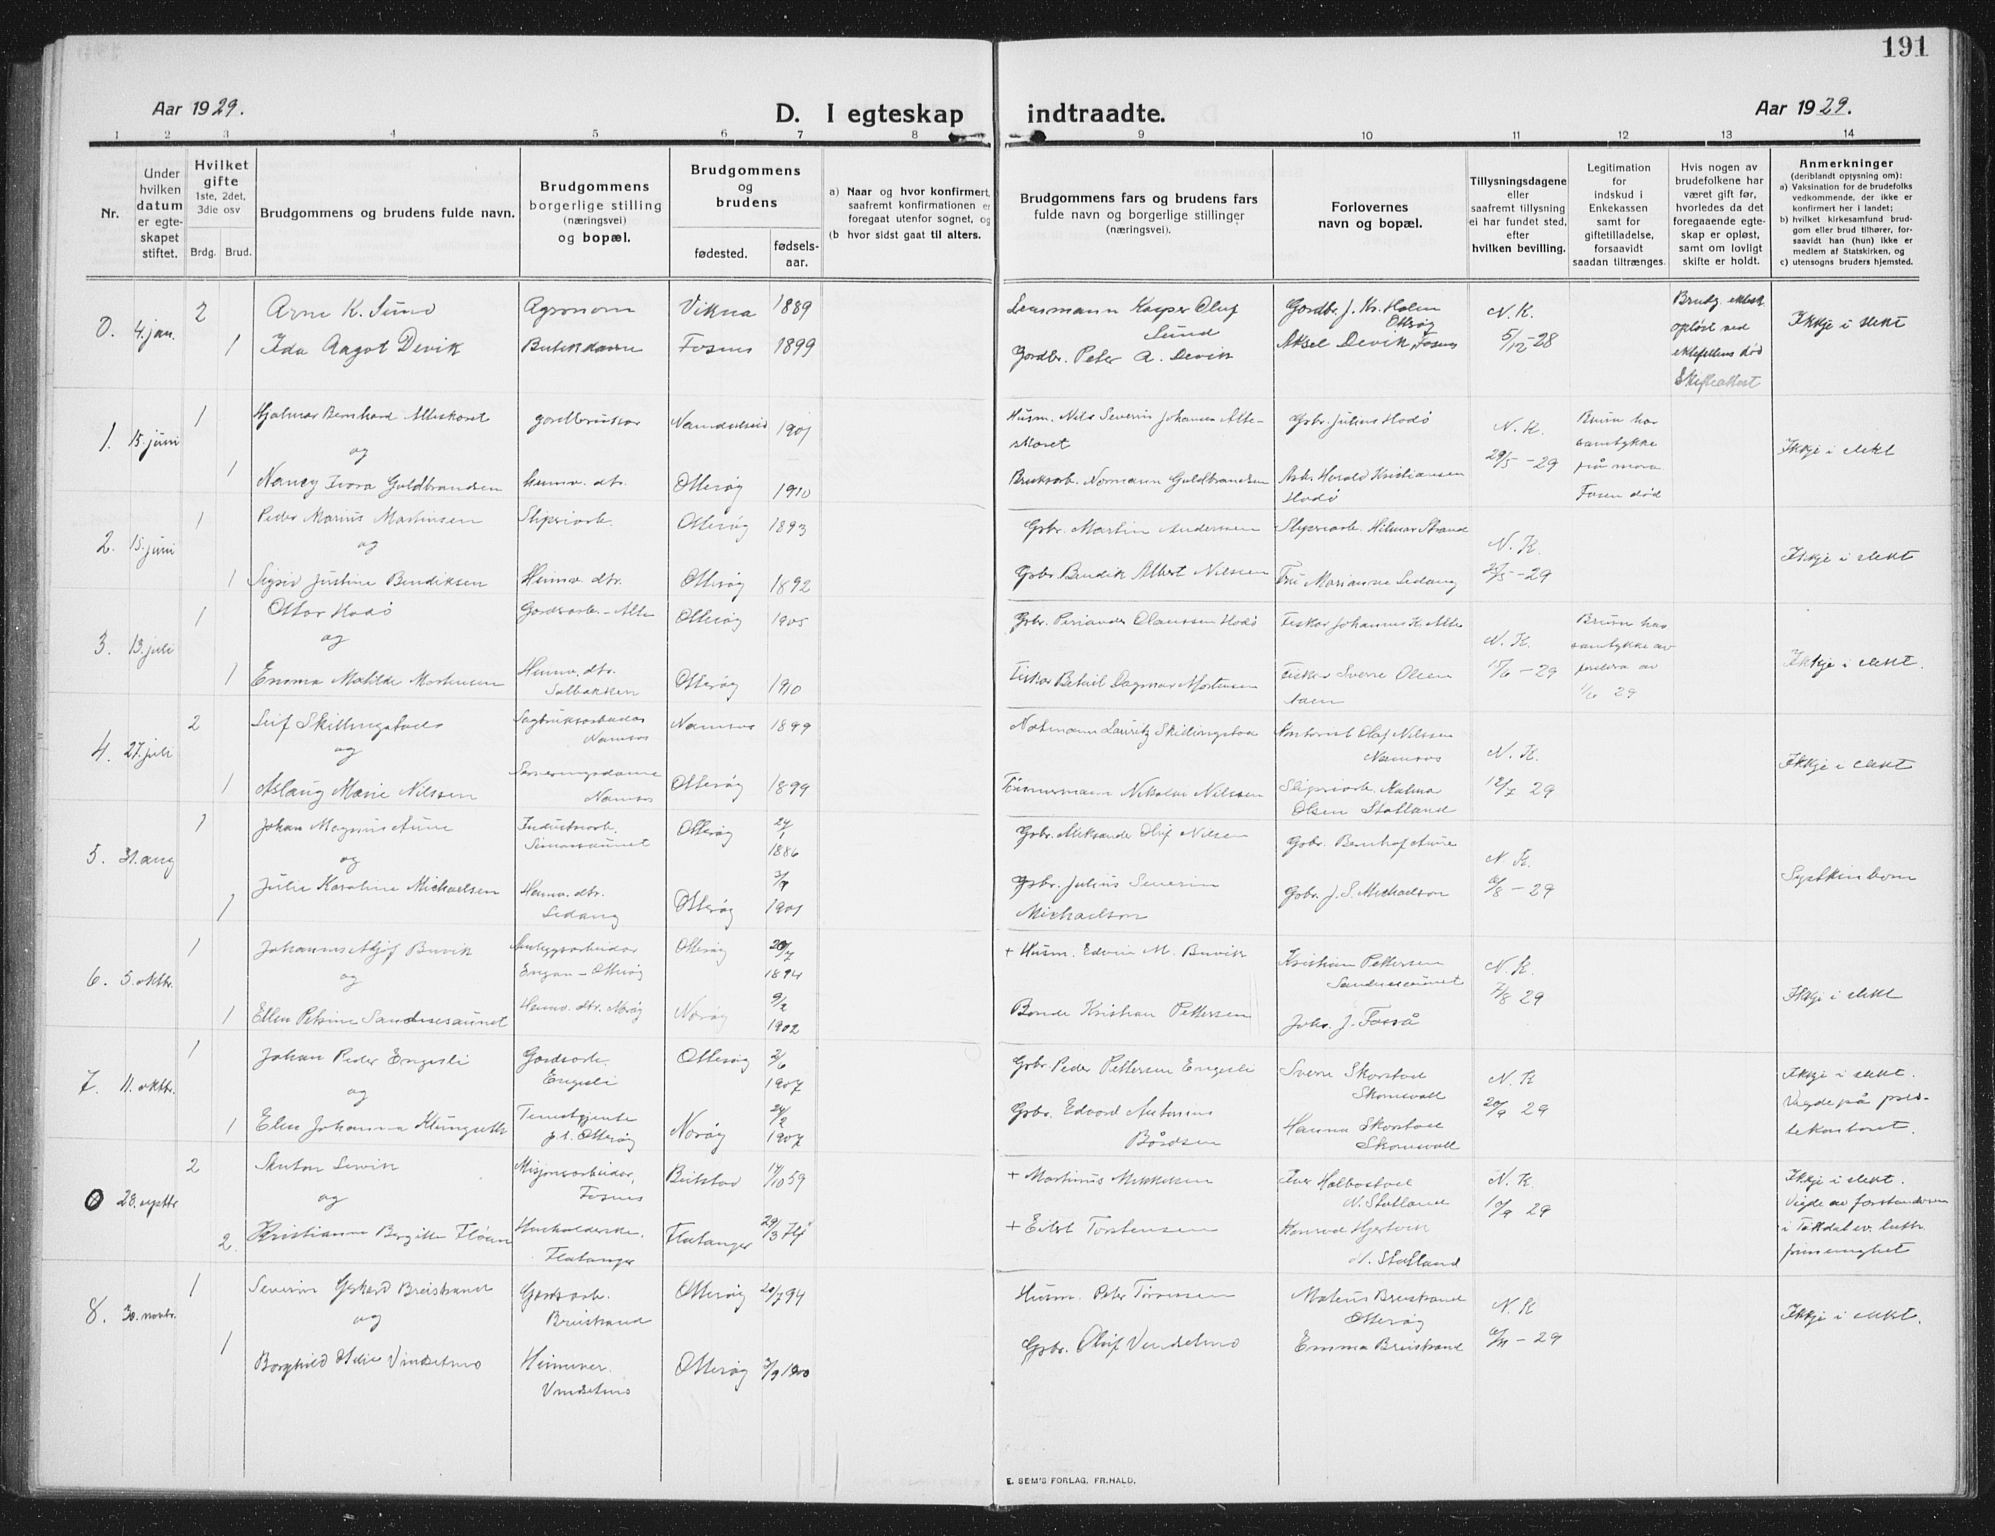 191
Aar 1929.
D. I egteskap indtraadte.
Aar 1929.
1 2 3 4 5 6 7 8 9 10 11 12 13 14
Nr.
Under
hvilken
datum
er egte-
skapet
stiftet.
Hvilket
gifte
1ste, 2det,
3die osv
Brdg. Brud.
Brudgommens og brudens fulde navn.
Brudgommens
borgerlige stilling
(næringsvei)
og bopæl.
Brudgommens
og
brudens
fødested.
fødsels-
aar.
a) Naar og hvor konfirmert,
saafremt konfirmationen er
foregaat utenfor sognet, og
(b hvor sidst gaat til alters.
Brudgommens fars og brudens fars
fulde navn og borgerlige stillinger
(næringsvei).
Forlovernes
navn og bopæl.
Tillysningsdagene
eller
saafremt tillysning
ei har fundet sted,
efter
hvilken bevilling.
Legitimation
for
indskud i
Enkekassen
samt for
giftetilladelse,
forsaavidt
saadan tiltrænges.
Hvis nogen av
brudefolkene har
været gift før,
hvorledes da det
foregaaende egte-
skap er opløst,
samt om lovligt
skifte er holdt.
Anmerkninger
(deriblandt oplysning om):
a) Vaksination for de brudefolks
vedkommende, der ikke er
konfirmert her i landet;
b) hvilket kirkesamfund brud-
gom eller brud tilhører, for-
saavidt han (hun) ikke er
medlem af Statskirken, og
c) utensogns bruders hjemsted.
0. 4. jan. 2 Arne K. Sund Agronom Vikna 1889 Lensmann Kasper Oluf Sund Gardbr. J. Kr. Holm Otterøy N. K. 5/12-28 Brudg. ekteskap opløst ved ektefellens død Ikkje i slekt
1 Ida Aagot Devik Butikdame Fosnes 1899 Gardbr. Peter A. Devik Aksel Devik, Fosnes
1. 15. juni 1 Hjalmar Bernhard Alteskoret gardbrukar Namdalseid 1901 Husm. Nils Severin Johansen Alte-
skoret Gbr. Julius Hodø N. K. 29/5-29 Bruri har
samtykke
frå mora
Faren død Ikkje i slekt
og
1 Nancy Ivara Guldbrandsen heimv. dtr. Otterøy 1910 Bruksarb. Normann Guldbrandsen Arb. Harald Kristiansen
Hodø
2. 15. juni 1 Peder Marius Martinsen Sliperiarb. Otterøy 1893 Gbr. Martin Andersen Sliperiarb. Hilmar Strand N. K. Ikkje i slekt
og
1 Sigrid Justine Bendiksen Heimv. dtr. Otterøy 1892 Gbr. Bendik Albert Nilssen Fru Marianne Sedang
3. 13. juli 1 Ottar Hodø Gardsarb. - Alte Otterøy 1905 Gbr. Periander Olaussen Hodø Fiskar Johannes K. Alte N. K. 15/6-29 Bruri har
samtykke av
foreldra av
1/6 29 Ikkje i slekt.
og
1 Emma Matilde Mortensen Heimv. dtr.
Solbakken Otterøy 1910 Fiskar Betuel Dagmar Mortensen Fiskar Sverre Olsen
4. 27. juli 2 Leif Skillingstad Sagbruksarbeidar
Namsos Namsos 1899 Notemann Lauritz Skillingstad Olaf Nilssen
Namsos N. K. 12/7 29 Ikkje i slekt
og
1 Aslaug Marie Nilssen Serveringsdame
Namsos Otterøy 1899 Tømmermann Nikolai Nilssen Sliperiarb. Kalma
Olsen Statland
5. 31. aug 1 Johan Magnus Aune Industriarb.
Simonsaunet Otterøy 24/1
1886 Gbr. Aleksander Oluf Nilsen Gbr. Bernhof Aune N. K. 6/8-29 Syskinborn
og
1 Julie Karoline Michaelsen Heimv. dtr.
Sedang Otterøy 3/7
1901 Gbr. Julius Severin
Michaelson Gbr. J. S. Michaelson
6. 5. oktbr. 1 Johannes Buvik Anleggsarbeidar
Engan - Otterøy Otterøy 1894 + Husm. Edvin M. Buvik Kristian Pettersen
Sandnesaunet N. K. 7/8 29 Ikkje i slekt
og
1 Ellen Petrine Sandnesaunet Heimv. dtr. Nærøy Nærøy 9/2
1902 Bonde Kristian Pettersen Johs. J. Fosså
7. 11. oktbr. 1 Johan Peder Engesli Gardsarb.
Engesli Otterøy 2/6
1907 Gbr. Peder Pettersen Engesli Sverre Skorstad
Skomsvoll N. K 20/9 29 Ikkje i slekt.
Vigde på pres-
tekontoret.
og
1 Elen Johanna Klungseth Tenestgjente
p.t. Otterøy Nærøy 24/2
1907 Gbr. Edvard Antonius
Bårdsen Hanna Skorstad
Skomsvoll
0 28. septbr 2 Anton Sevik Misjonsarbeidar,
Fosnes Beitstad 14/10 59 + Martinus Mikkelsen Iver Halbostad
N. Statland N. K. 10/9 29 Ikkje i slekt.
Vigde av forstandaren
i Trkdal ev. luth.
frimenighet
og
2. Kristianna Bergitte Fløan Husholderske,
Flatanger Flatanger 29/3 74 + Eilert Torstensen Konrad Hjertvik
N. Statland
8. 30. novbr. 1 Severin Gerhard Breistrand Gardsarb.
Breistrand Otterøy 20/7 94 Husm. Peter Tørrissen Mateus Breistrand
Otterøy N. K 6/11-29 Ikkje i slekt.
og
1 Borghild Vindsetmo Heimever.
Vindsetmo Otterøy 3/9 1900 Gbr. Oluf Vindsetmo Emma Breistrand
E. SEM'S FORLAG. FR.HALD.